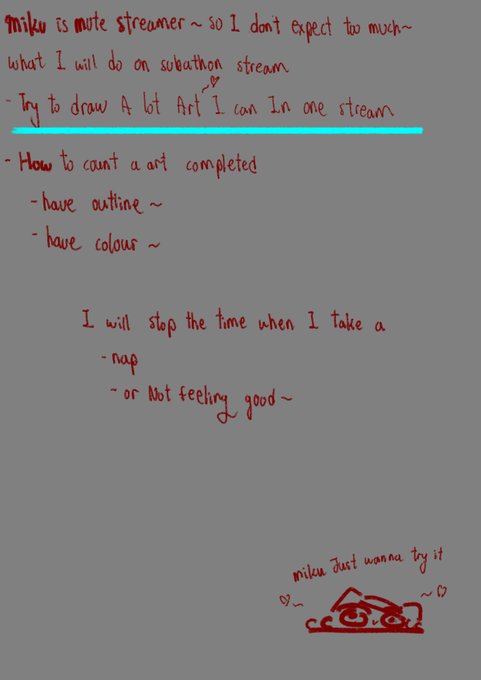 miku is mute streamer ~ so I don't expect too much~
what I will do on subathon stream
- Try to draw A lot Art I can In one stream ~♡
- How to count a art completed
- have outline ~
- have colour ~
I will stop the time when I take a
- nap
- or Not feeling good ~
miku Just wanna try it